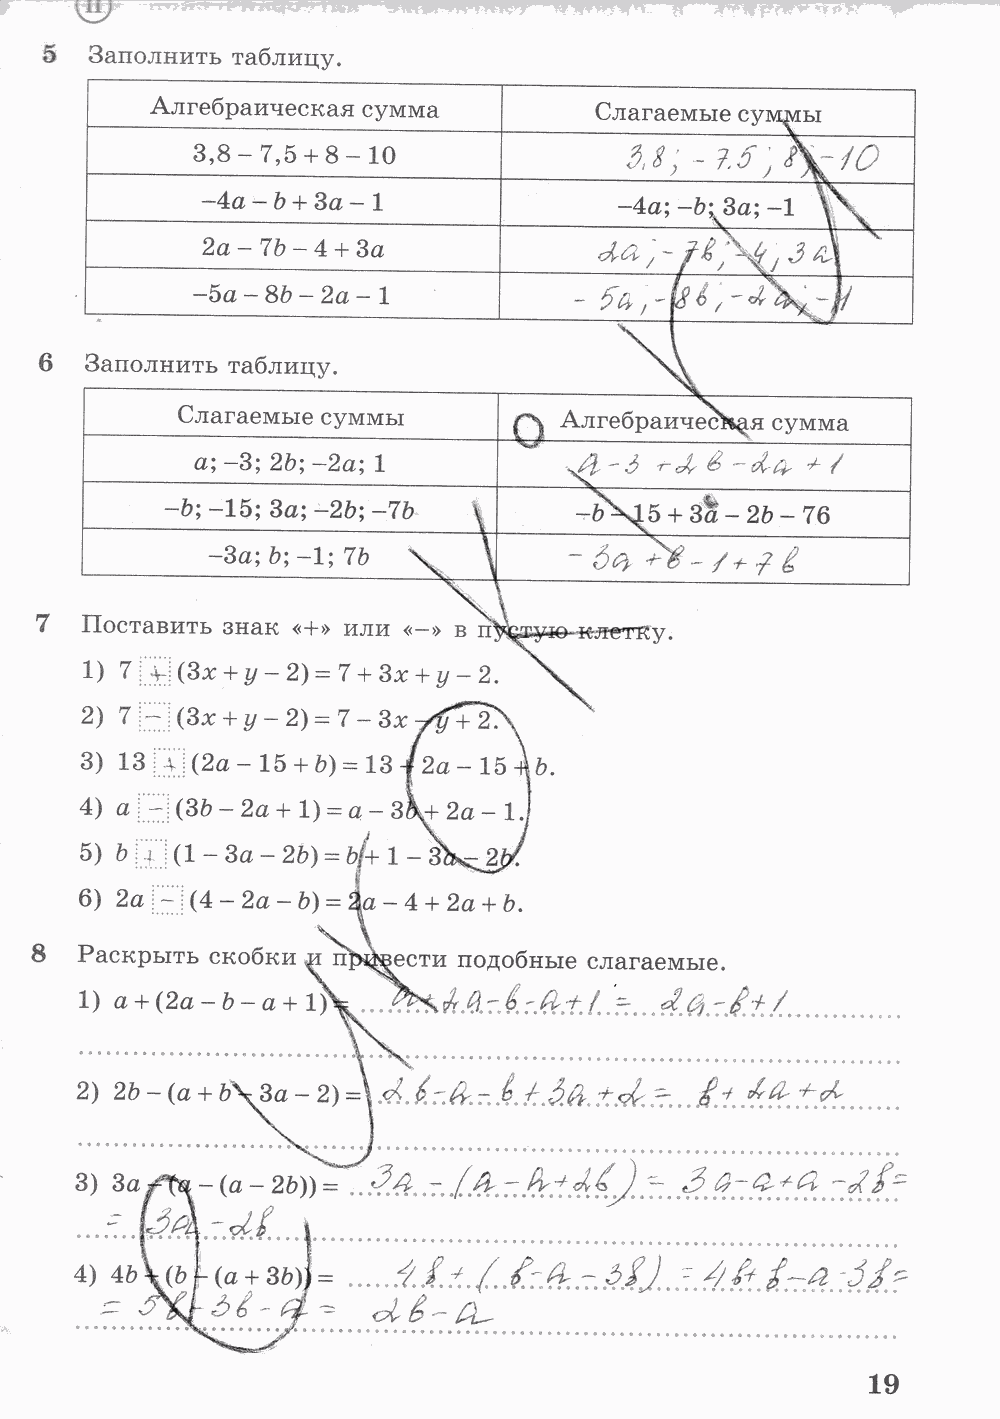 II
5 Заполнить таблицу.
Алгебраическая сумма Слагаемые суммы
3,8 – 7,5 + 8 – 10 3,8; -7.5; 8; -10
–4a – b + 3a – 1 –4a; –b; 3a; –1
2a – 7b – 4 + 3a 2a; -7b; -4; 3a
–5a – 8b – 2a – 1 -5a; -8b; -2a; -1
6 Заполнить таблицу.
Слагаемые суммы Алгебраическая сумма
a; –3; 2b; –2a; 1 a-3+2b-2a+1
–b; –15; 3a; –2b; –7b –b – 15 + 3a – 2b – 76
–3a; b; –1; 7b -3a+b-1+7b
7 Поставить знак «+» или «–» в пустую клетку.
1) 7 + (3x + y – 2) = 7 + 3x + y – 2.
2) 7 – (3x + y – 2) = 7 – 3x – y + 2.
3) 13 + (2a – 15 + b) = 13 + 2a – 15 + b.
4) a – (3b – 2a + 1) = a – 3b + 2a – 1.
5) b + (1 – 3a – 2b) = b + 1 – 3a – 2b.
6) 2a – (4 – 2a – b) = 2a – 4 + 2a + b.
8 Раскрыть скобки и привести подобные слагаемые.
1) a + (2a – b – a + 1) = a+2a-b-a+1 = 2a-b+1
2) 2b – (a + b – 3a – 2) = 2b-a-b+3a+2 = b+2a+2
3) 3a – (a – (a – 2b)) = 3a-(a-a+2b) = 3a-a+a-2b=
= 3a-2b
4) 4b + (b – (a + 3b)) = 4b+(b-a-3b) = 4b+b-a-3b=
= 5b-3b-a = 2b-a
19